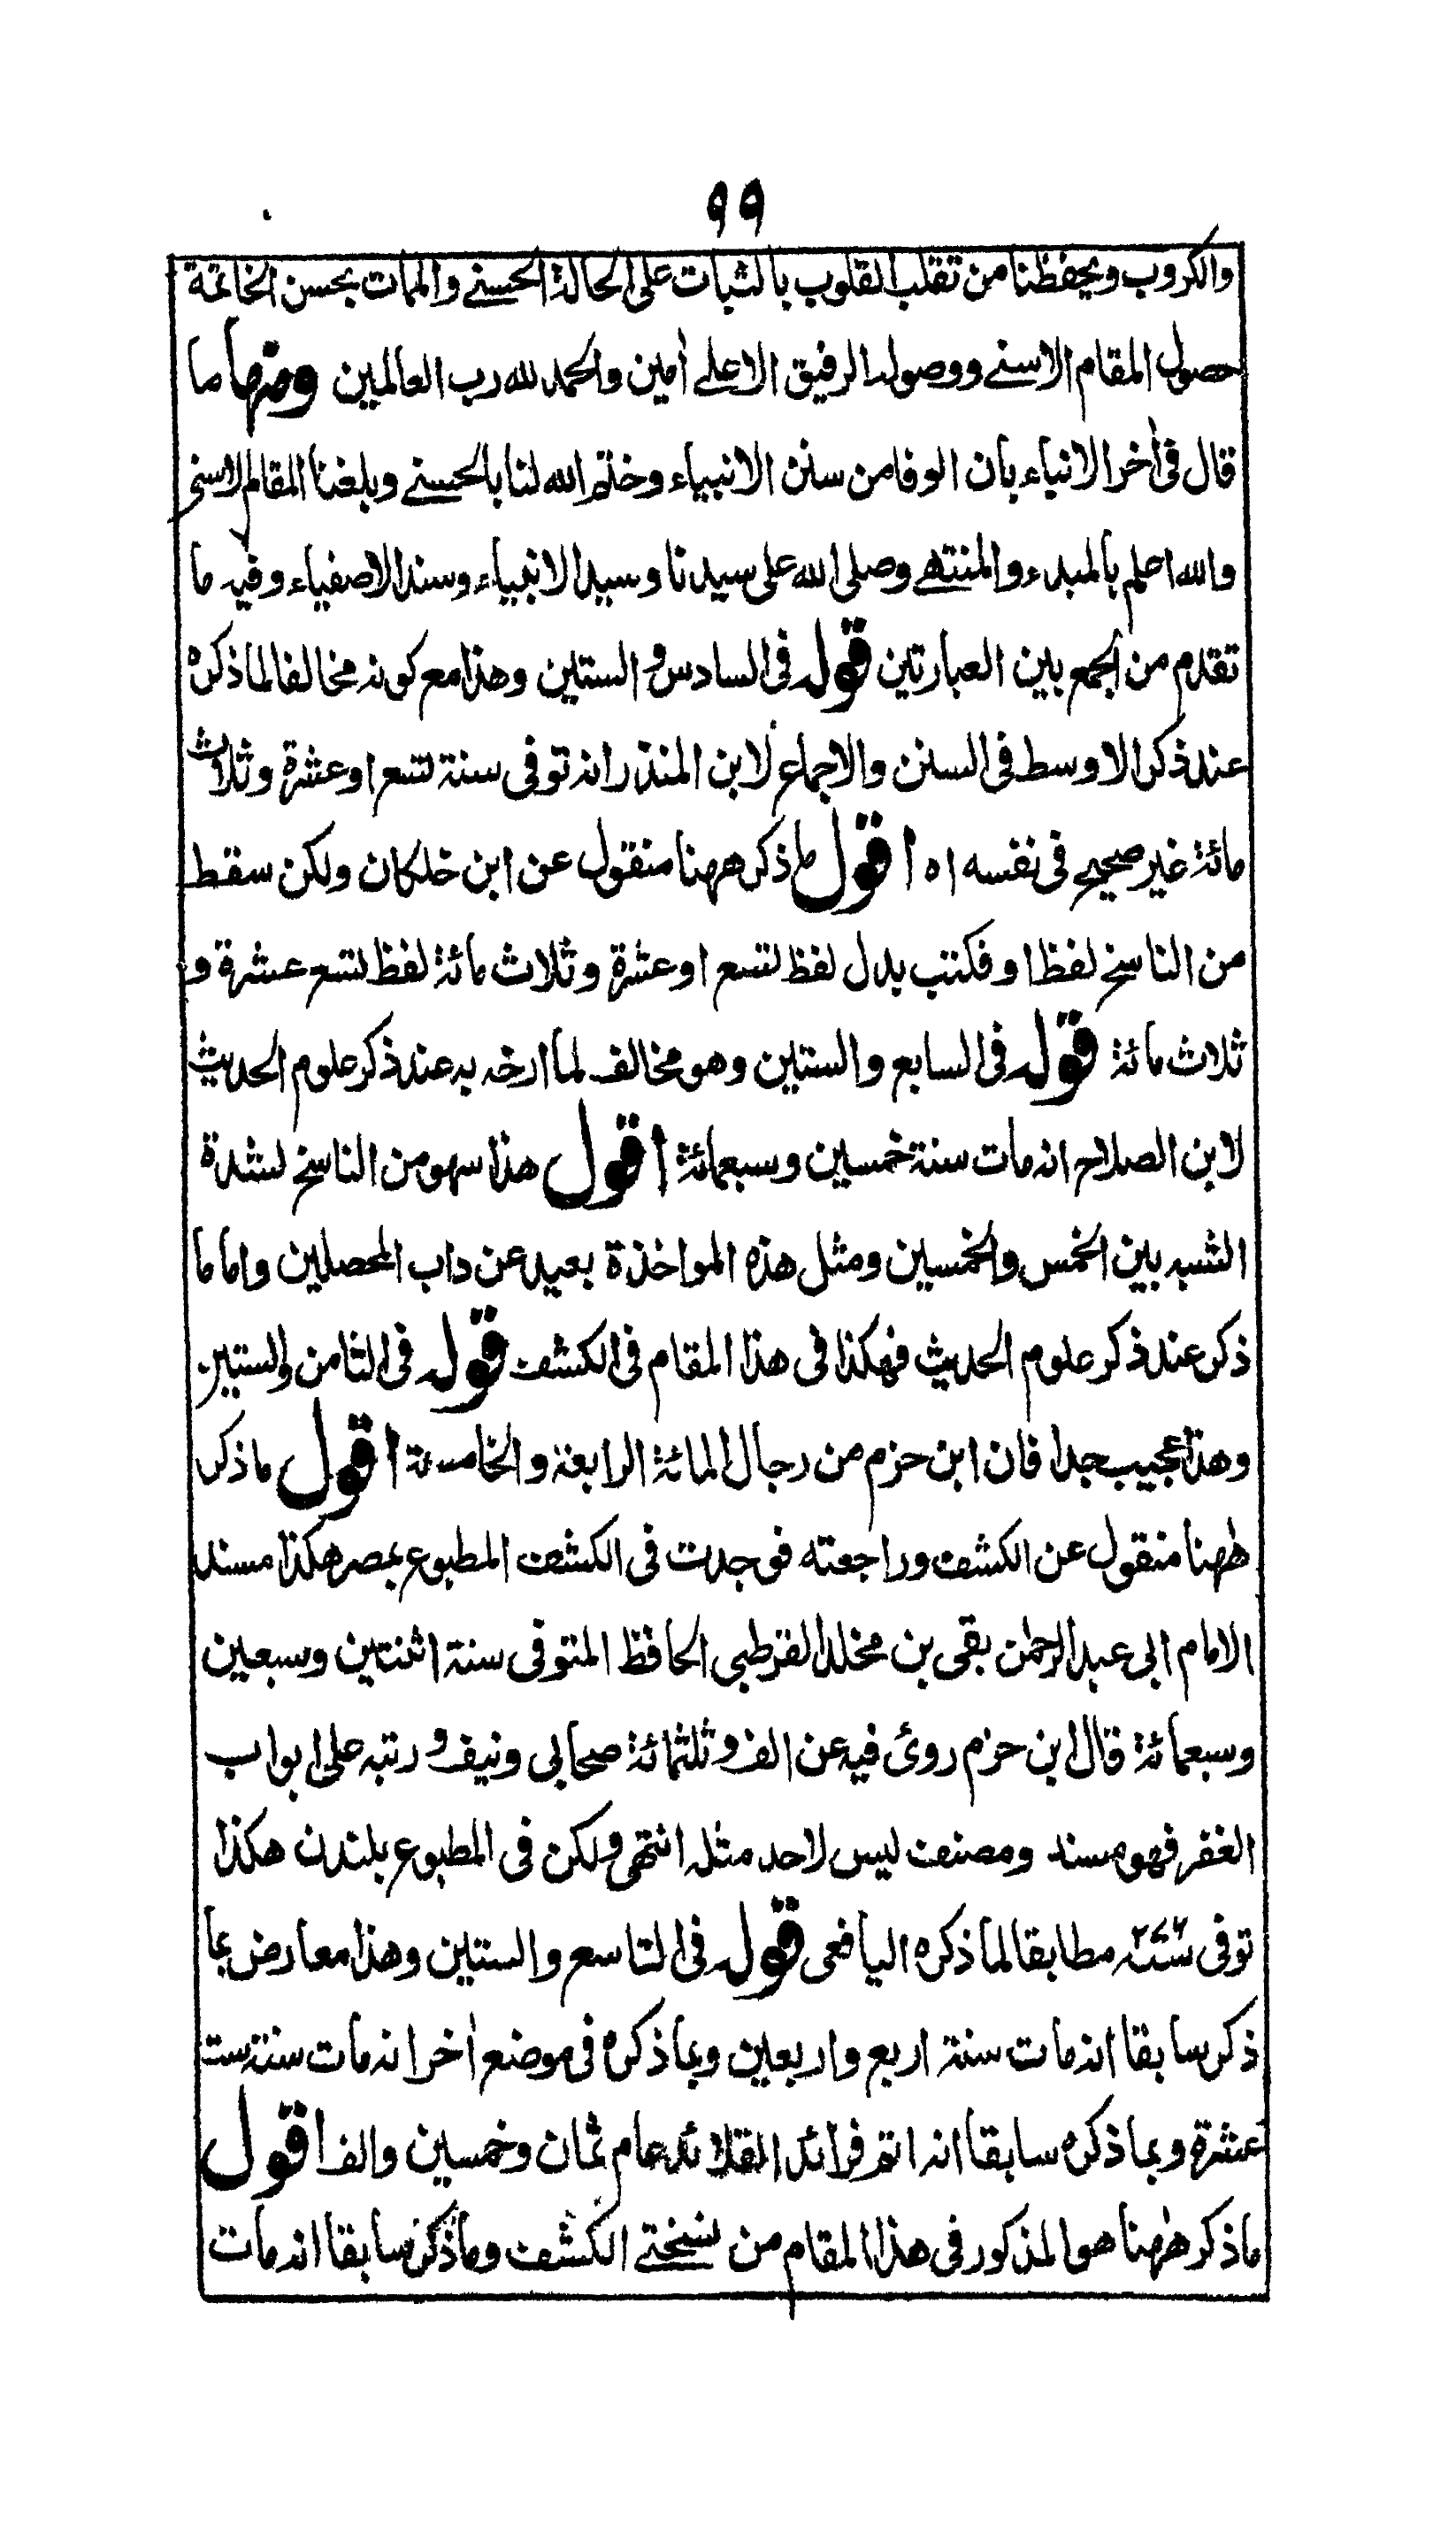 ٩٩
والكروب ويحفظنا من تقلب القلوب بالثبات على الحالة الحسنے والممات بحسن الخاتمة
حصول المقام الاسنے ووصول الرفيق الاعلے أمين والحمد لله رب العالمين ومنها ما
قال فی أخر الانباء بان الوفا من سنن الانبياء وختم الله لنا بالحسنے وبلغنا المقام الاسنى
والله اعلم بالمبدء والمنتهے وصلى الله على سيدنا وسيد الانبياء وسند الاصفياء وفيه ما
تقدم من الجمع بين العبارتين قوله فی السادس والستين وهذا مع كونه مخالفا لما ذكره
عند ذكر الاوسط فی السنن والاجماع لابن المنذر انه توفی سنة تسع او عشرة وثلاث
مائة غير صحيح فی نفسه اه اقول ما ذكر ههنا منقول عن ابن خلكان ولكن سقط
من الناسخ لفظ او فكتب بدل لفظ تسع او عشرة وثلاث مائة لفظ تسع عشرة و
ثلاث مائة قوله فی السابع والستين وهو مخالف لما ارخه به عند ذكر علوم الحديث
لابن الصلاح انه مات سنة خمسين وسبعمائة اقول هذا سهو من الناسخ لشدة
الشبه بين الخمس والخمسين ومثل هذه المواخذة بعيد عن داب المحصلين واما ما
ذكر عند ذكر علوم الحديث فهكذا فی هذا المقام فی الكشف قوله فی الثامن والستين
وهذا عجيب جدا فان ابن حزم من رجال المائة الرابعة والخامسة اقول ما ذكر
ههنا منقول عن الكشف وراجعته فوجدت فی الكشف المطبوع بمصر هكذا مسند
الامام ابی عبد الرحمن بقی بن مخلد القرطبی الحافظ المتوفی سنة اثنتين وسبعين
وسبعمائة قال ابن حزم روى فيه عن الف وثلثمائة صحابی ونيف ورتبه على ابواب
الغفر فهو مسند ومصنف ليس لاحد مثله انتهى ولكن فی المطبوع بلندن هكذا
توفی سنة ٢٧٢ مطابقا لما ذكره اليافعی قوله فی التاسع والستين وهذا معارض بما
ذكر سابقا انه مات سنة اربع واربعين وبما ذكره فی موضع أخر انه مات سنة ست
عشرة وبما ذكره سابقا انه اتم فرائد القلائد عام ثمان وخمسين والف اقول
ما ذكر ههنا هو المذكور فی هذا المقام من نسختے الكشف وما ذكر سابقا انه مات